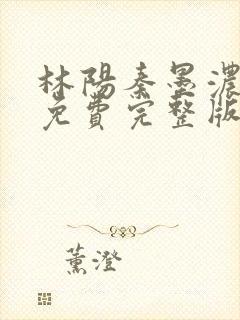 林陽秦墨濃
免費完整版
薰澄